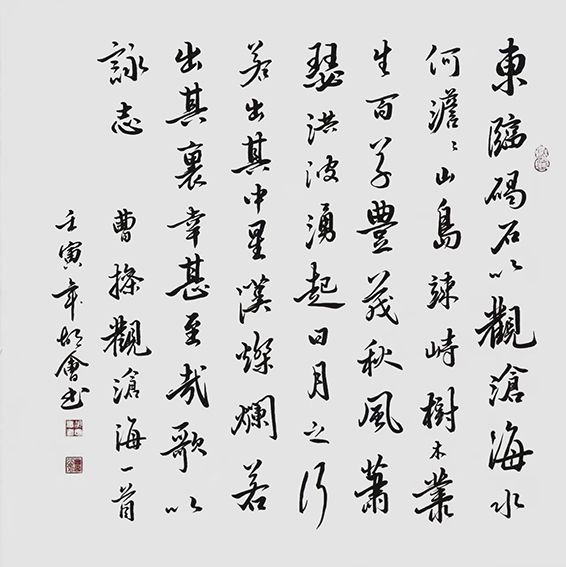 東臨碣石以觀滄海水
何澹〻山島竦峙樹木叢
生百草豐茂秋風蕭
瑟洪波湧起日月之行
若出其中星漢燦爛若
出其裏幸甚至哉歌以
詠志 曹操觀滄海一首
壬寅年胡會书